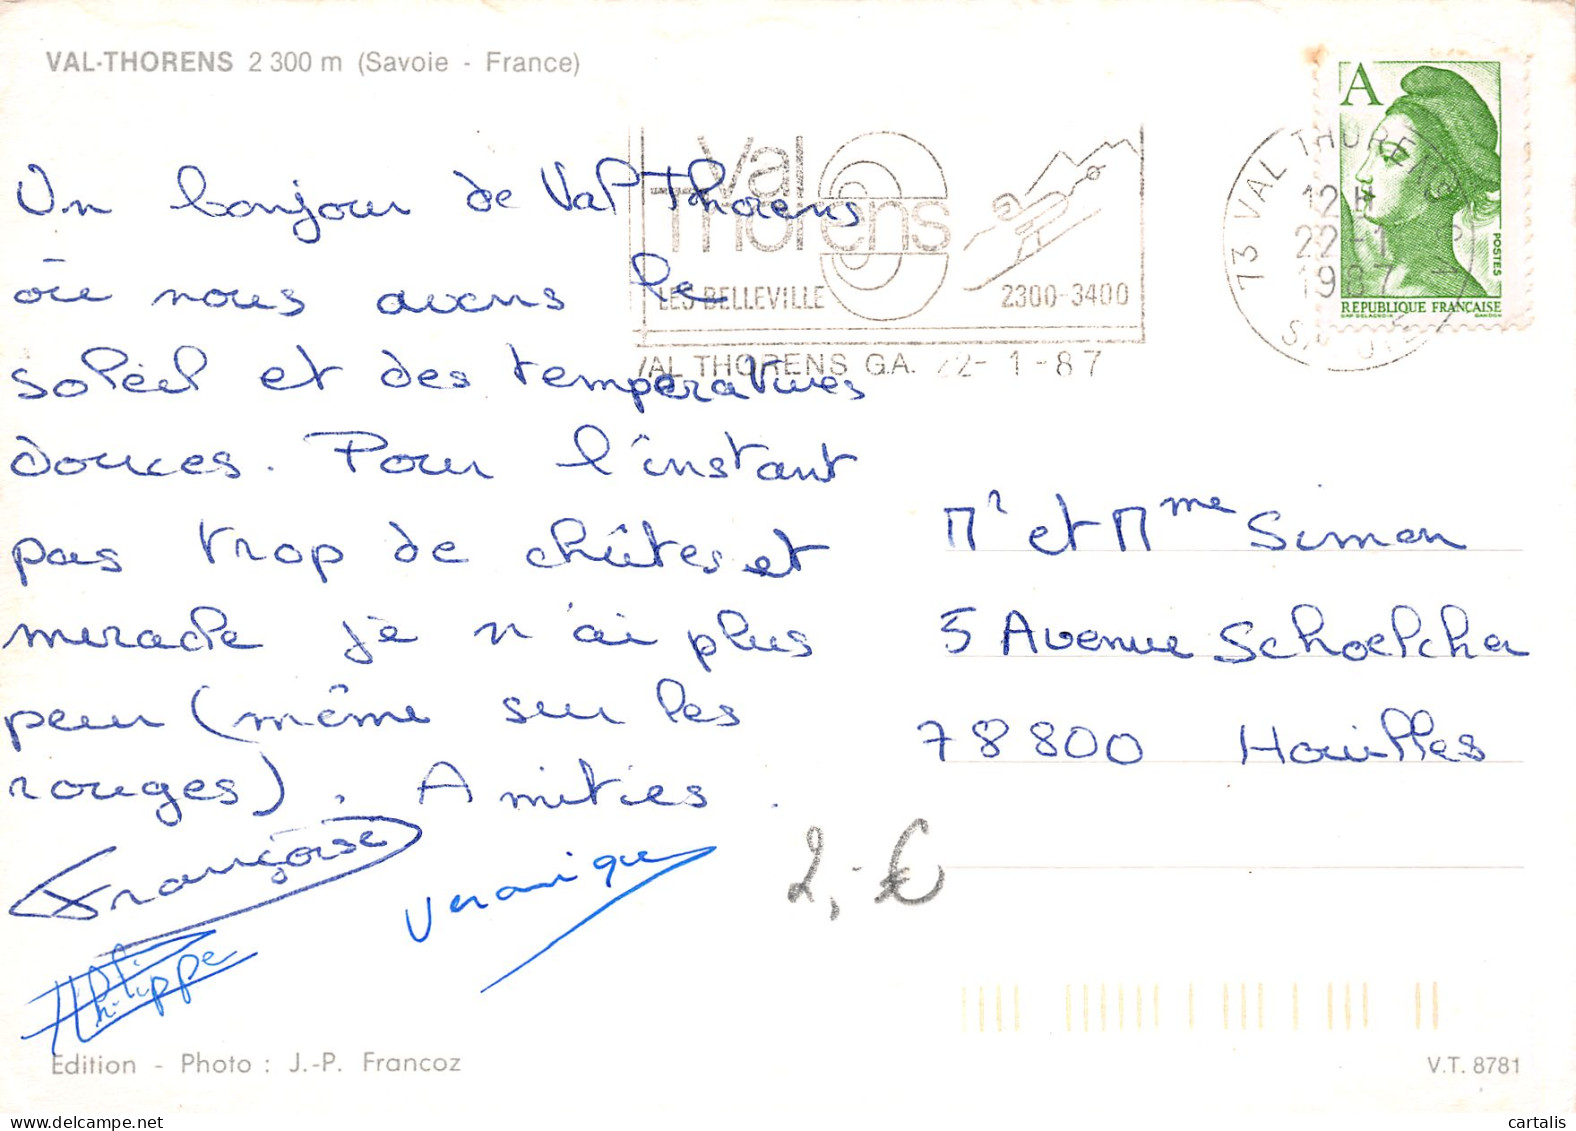 VAL-THORENS 2 300 m (Savoie - France)
Un bonjour de Val Thorens
où nous avons le
soleil et des températures
douces. Pour l'instant
pas trop de chûtes et
miracle je n'ai plus
peur (même sur les
rouges). Amitiés.
Françoise
Véronique
Philippe
Val
Thorens
LES BELLEVILLE 2300-3400
VAL THORENS G.A. 22-1-87
73 VAL THORENS
12H
22-1
1987
SAVOIE
A
POSTES
RÉPUBLIQUE FRANÇAISE
GANDON
Mr et Mme Simon
5 Avenue Schoelcher
78800 Houilles
2,-€
Edition - Photo : J.-P. Francoz
V.T. 8781
delcampe.net
cartalis